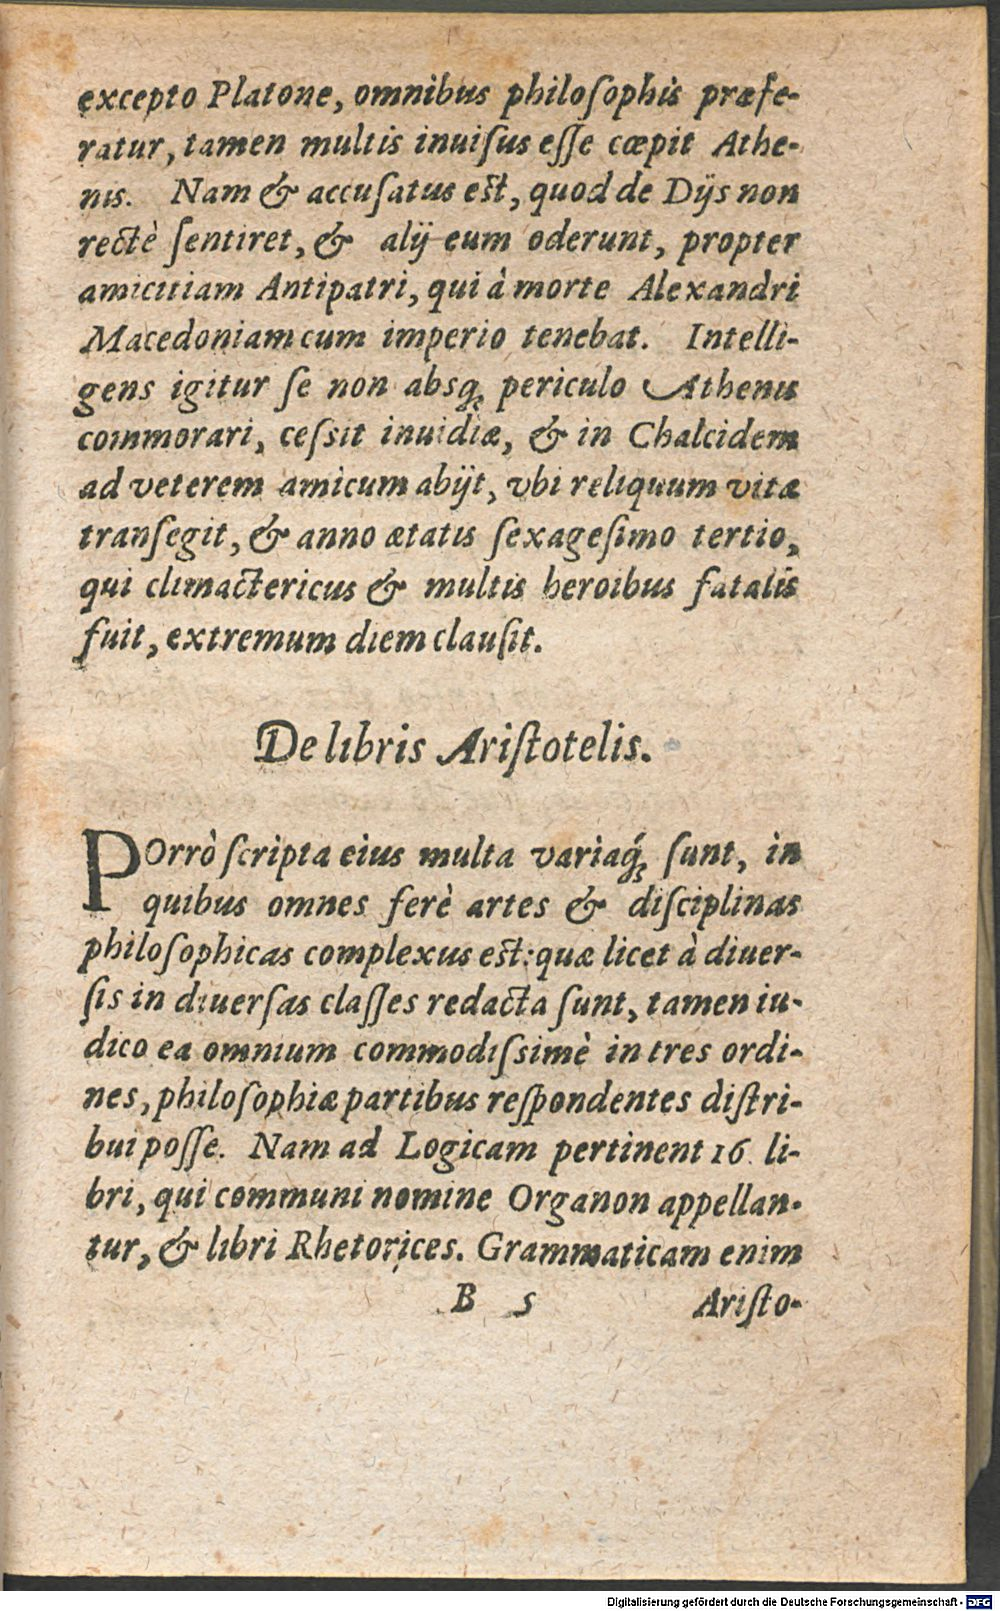 excepto Platone, omnibus philoſophis præfe-
ratur, tamen multis inuiſus eſſe cœpit Athe-
nis. Nam & accuſatus est, quod de Dijs non
rectè ſentiret, & alij eum oderunt, propter
amicitiam Antipatri, qui à morte Alexandri
Macedoniam cum imperio tenebat. Intelli-
gens igitur ſe non absq; periculo Athenis
commorari, ceſsit inuidiæ, & in Chalcidem
ad veterem amicum abijt, vbi reliquum vitæ
tranſegit, & anno ætatis ſexageſimo tertio,
qui climactericus & multis heroibus fatalis
fuit, extremum diem clauſit.
De libris Ariſtotelis.
POrrò ſcripta eius multa variaq́; ſunt, in
quibus omnes ferè artes & diſciplinas
philoſophicas complexus est: quæ licet à diuer-
ſis in diuerſas claſſes redacta ſunt, tamen iu-
dico ea omnium commodiſsimè in tres ordi-
nes, philoſophiæ partibus reſpondentes diſtri-
bui poſſe. Nam ad Logicam pertinent 16. li-
bri, qui communi nomine Organon appellan-
tur, & libri Rhetorices. Grammaticam enim
B 5 Ariſto-
Digitalisierung gefördert durch die Deutsche Forschungsgemeinschaft - DFG